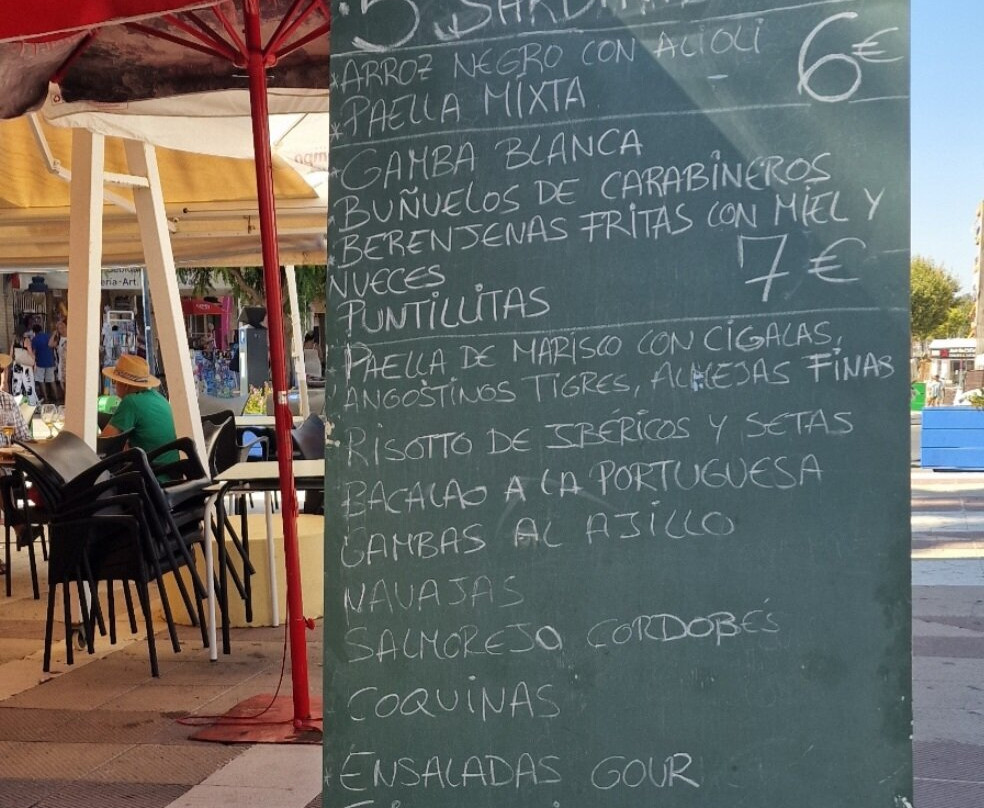 5 SARDINAS
*ARROZ NEGRO CON ALIOLI 6€
*PAELLA MIXTA
*GAMBA BLANCA
BUÑUELOS DE CARABINEROS
BERENJENAS FRITAS CON MIEL Y
NUECES 7€
PUNTILLITAS
PAELLA DE MARISCO CON CIGALAS,
ANGOSTINOS TIGRES, ALMEJAS FINAS
RISOTTO DE IBÉRICOS Y SETAS
BACALAO A LA PORTUGUESA
GAMBAS AL AJILLO
NAVAJAS
SALMOREJO CORDOBÉS
COQUINAS
ENSALADAS GOUR